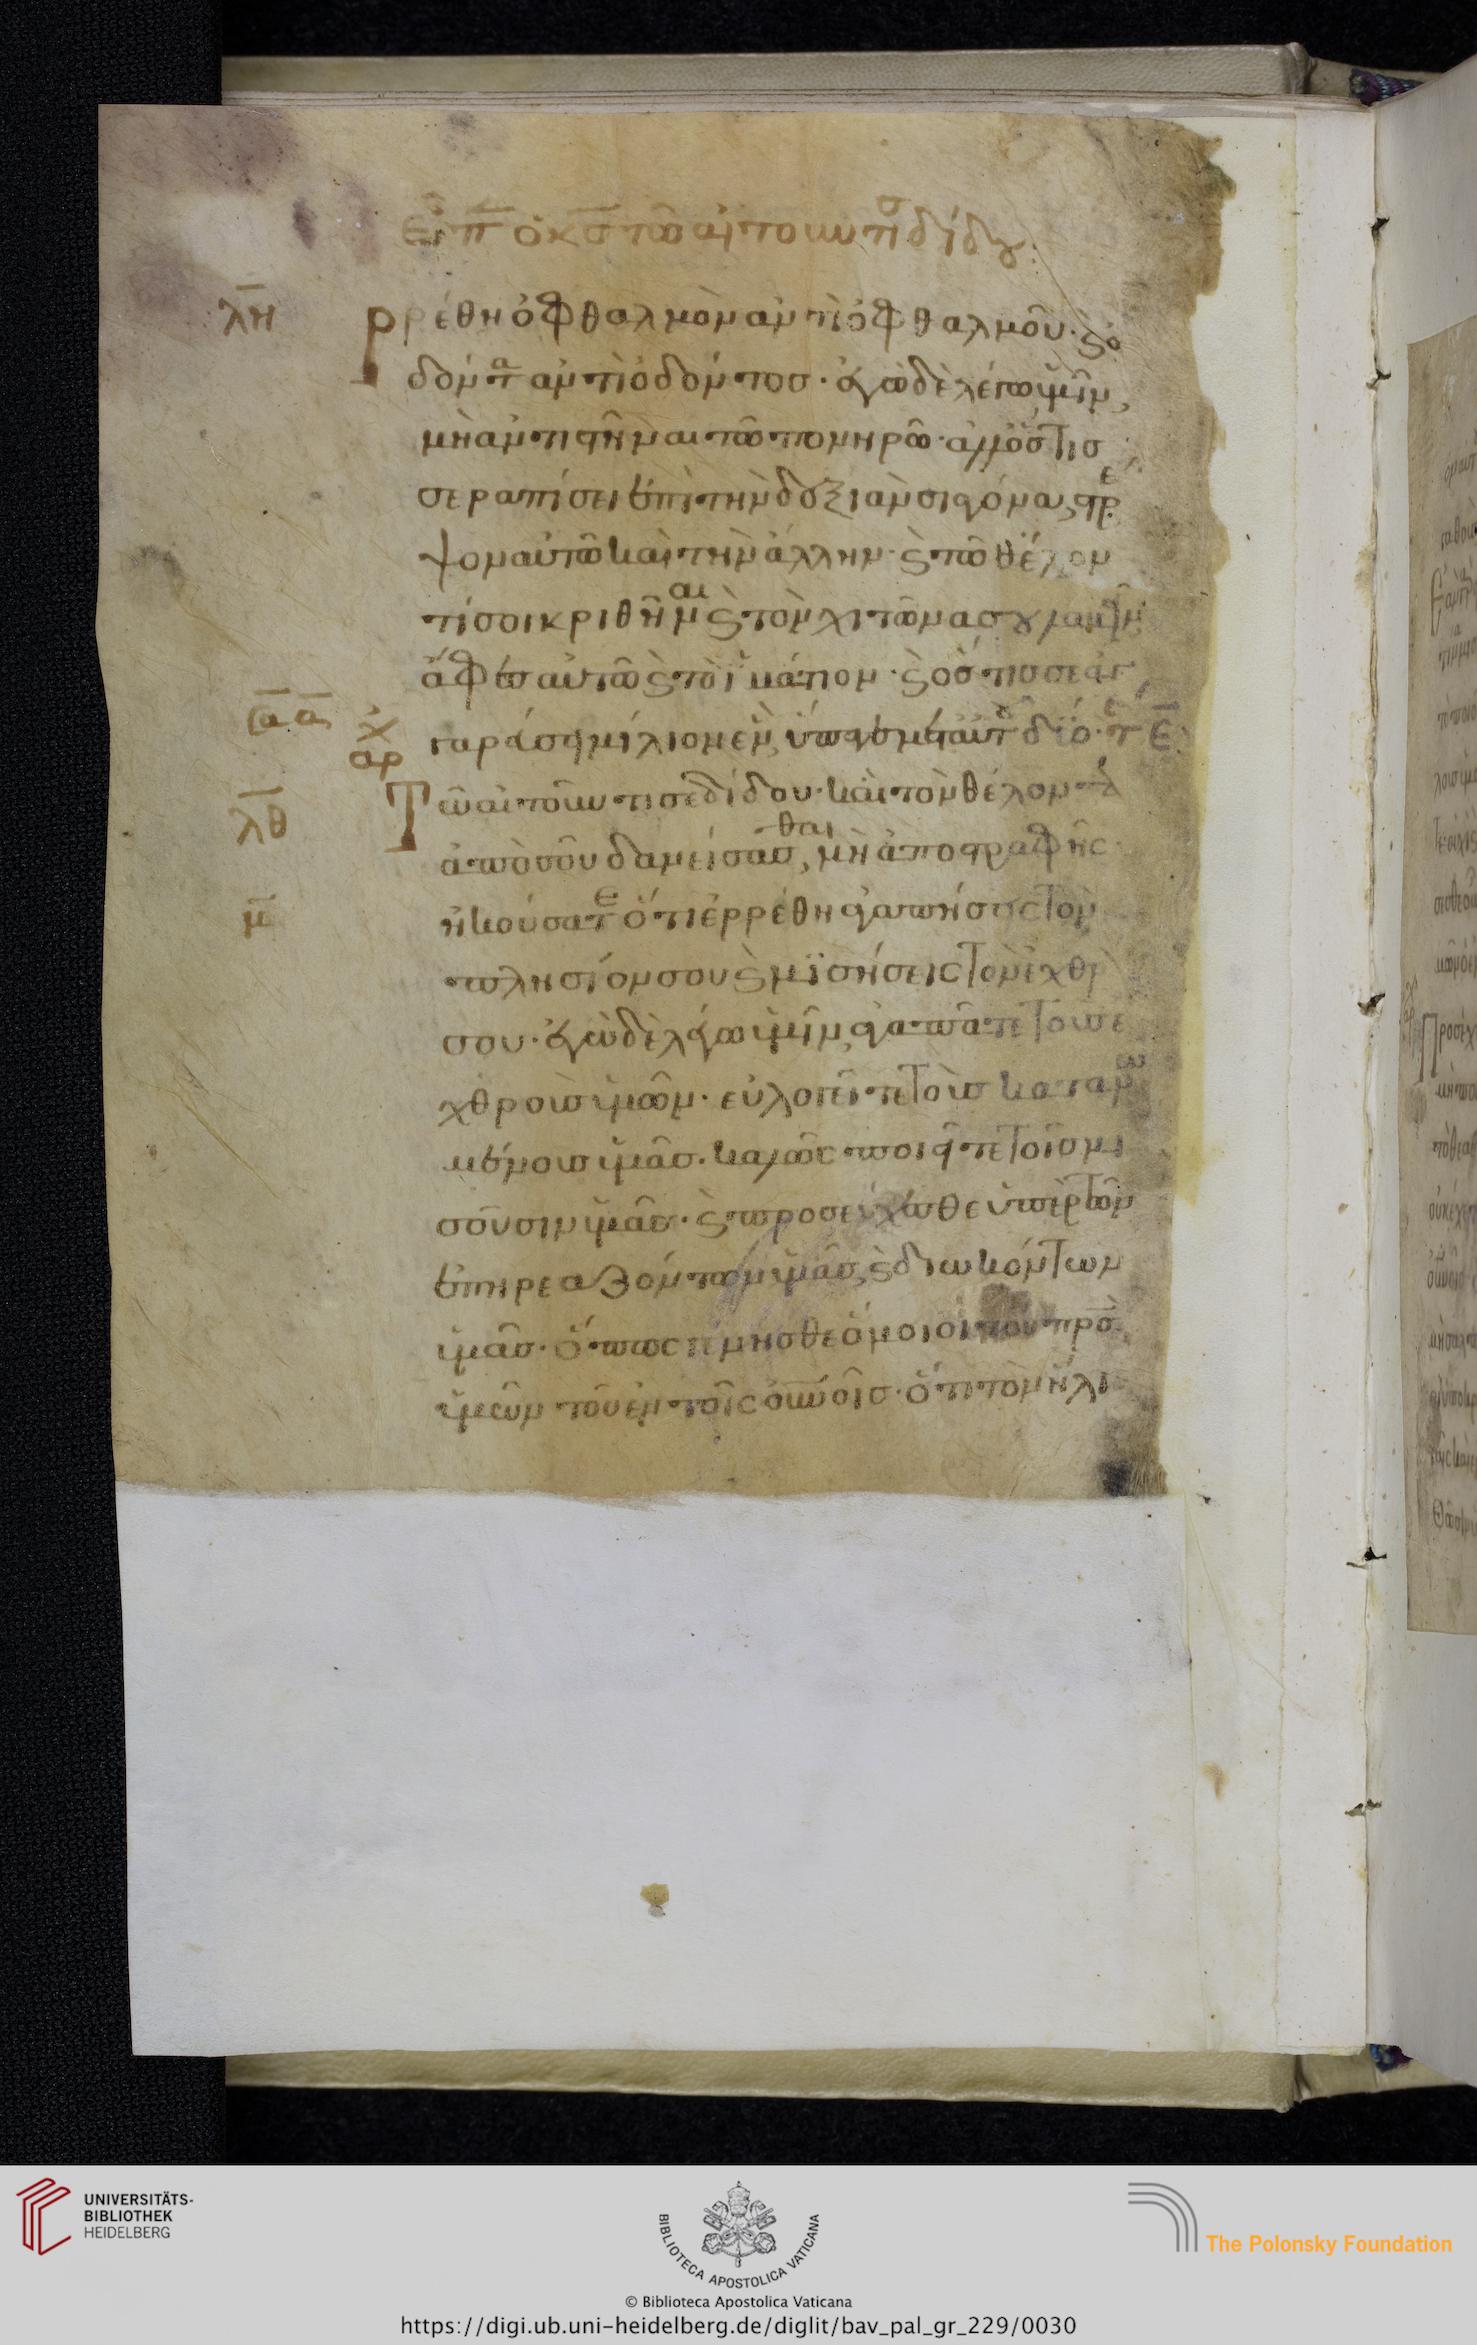 Εἰπ ὁ κσ τῶ αἰτοῦντι σε δίδου·
λη
ρρέθη ὀφθαλμὸν ἀντὶ ὀφθαλμοῦ· ϗ ὀ
δόντα ἀντὶ ὀδόντοσ· ἐγὼ δὲ λέγω ὑμῖν,
μὴ ἀντιστῆναι τῶ πονηρῶ· ἀλλ' ὅστισ
σε ραπίσει ἐπὶ τὴν δεξιὰν σιαγόνα, στρέ
ψον αὐτῶ καὶ τὴν ἄλλην· ϗ τῶ θέλον
τί σοι κριθῆναι ϗ τὸν χιτῶνα σου λαβεῖν
ἄφεσ αὐτῶ ϗ τὸ ἱμάτιον· ϗ ὅστισ σε ἀγ
γαρεύσει μίλιον ἓν, ὕπαγε μετ' αὐτοῦ δύο·
αρχ
Τῶ αἰτοῦντι σε δίδου· καὶ τὸν θέλοντα
λθ
ἀπὸ σοῦ δανείσασθαι, μὴ ἀποστραφῆς
μ
ἠκούσατε ὅτι ἐρρέθη ἀγαπήσεις τὸν
πλησίον σου ϗ μισήσεις τὸν ἐχθρ
σου· ἐγὼ δὲ λέγω ὑμῖν, ἀγαπᾶτε τοὺσ ἐ
χθροὺσ ὑμῶν· εὐλογεῖτε τοὺσ καταρω
μένουσ ὑμᾶσ· καλῶς ποιεῖτε τοῖσ μι
σοῦσιν ὑμᾶσ· ϗ προσεύχεσθε ὑπὲρ τῶν
ἐπηρεαζόντων ὑμᾶσ, ϗ διωκόντων
ὑμᾶσ· ὅπως γένησθε ὅμοιοι τοῦ πρσ
ὑμῶν τοῦ ἐν τοῖς οὐνοῖσ· ὅτι τὸν ἥλι
UNIVERSITÄTS-
BIBLIOTHEK
HEIDELBERG
BIBLIOTECA APOSTOLICA VATICANA
The Polonsky Foundation
© Biblioteca Apostolica Vaticana
https://digi.ub.uni-heidelberg.de/diglit/bav_pal_gr_229/0030